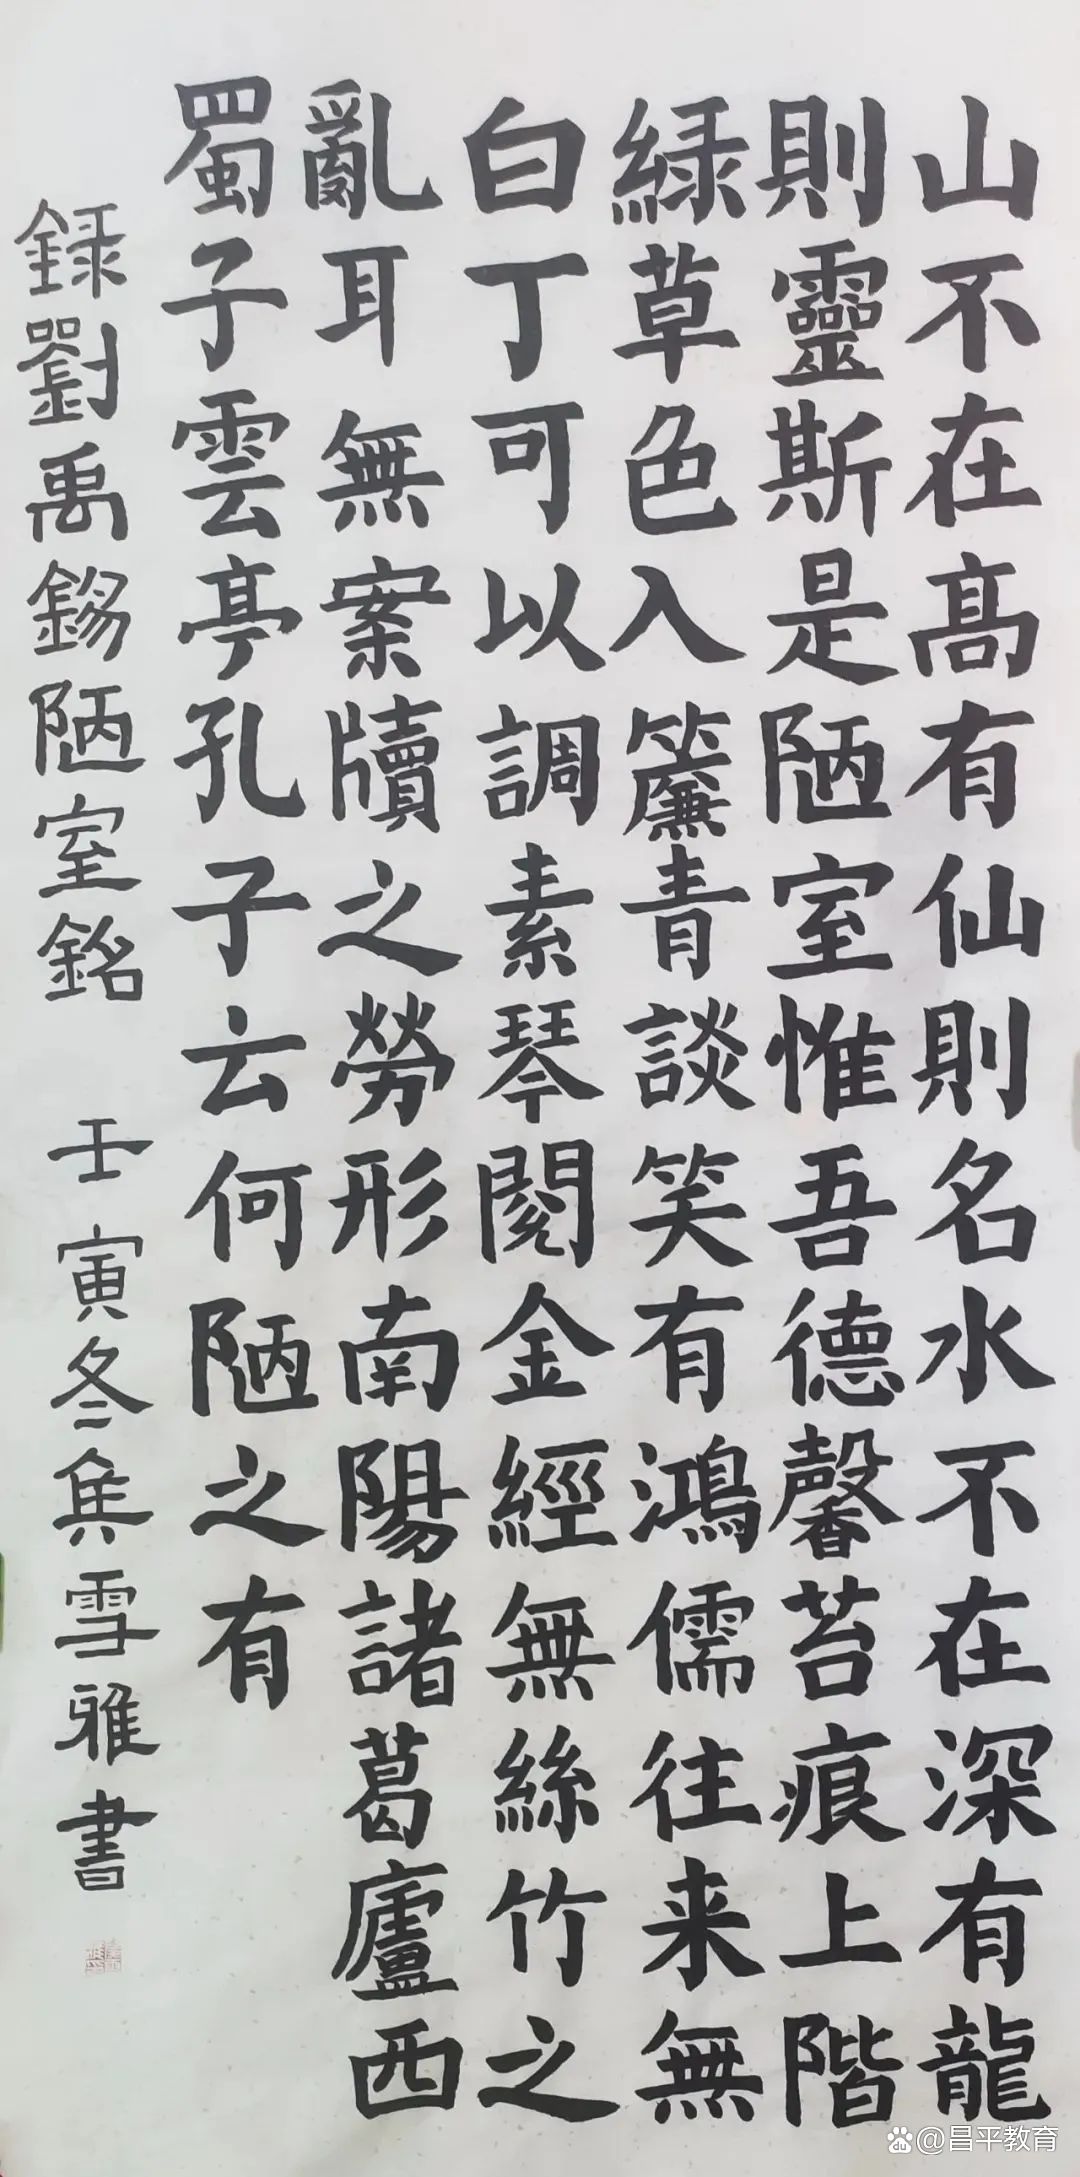 山不在高有仙則名水不在深有龍
則靈斯是陋室惟吾德馨苔痕上階
緑草色入簾青談笑有鴻儒往来無
白丁可以調素琴閱金經無絲竹之
亂耳無案牘之勞形南陽諸葛廬西
蜀子雲亭孔子云何陋之有
録劉禹錫陋室銘 壬寅冬隽雪雅書
@昌平教育